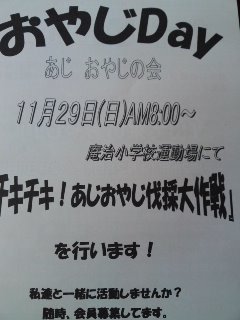 おやじDay
あじ おやじの会
11月29日(日)AM8:00～
庵治小学校運動場にて
チキチキ！あじおやじ伐採大作戦』
を行います！
私達と一緒に活動しませんか？
随時、会員募集してます。